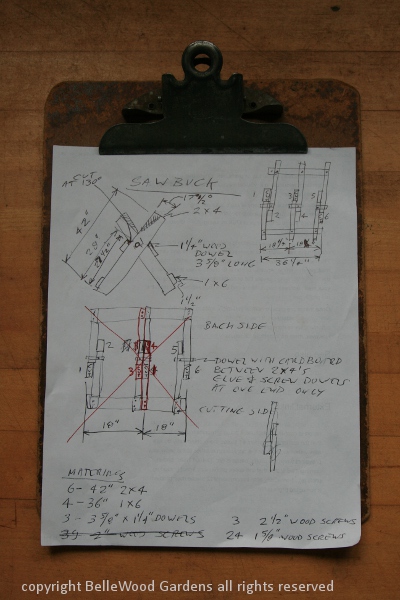 CUT
AT 130°
SAWBUCK
2x4
42"
1 1/4" WOOD
DOWEL
3 5/8" LONG
1x6
1 1/2"
36 1/4"
1
2
3
4
5
6
BACK SIDE
2
5
1
3
6
DOWEL WITH CARDBOARD
BETWEEN 2x4'S
GLUE & SCREW DOWELS
AT ONE END ONLY
CUTTING SIDE
18"
18"
MATERIALS
6 - 42" 2x4
4 - 36" 1x6
3 - 3 5/8" x 1 1/4" DOWELS
3 2 1/2" WOOD SCREWS
2" WOOD SCREWS
24 1 5/8" WOOD SCREWS
copyright BelleWood Gardens all rights reserved